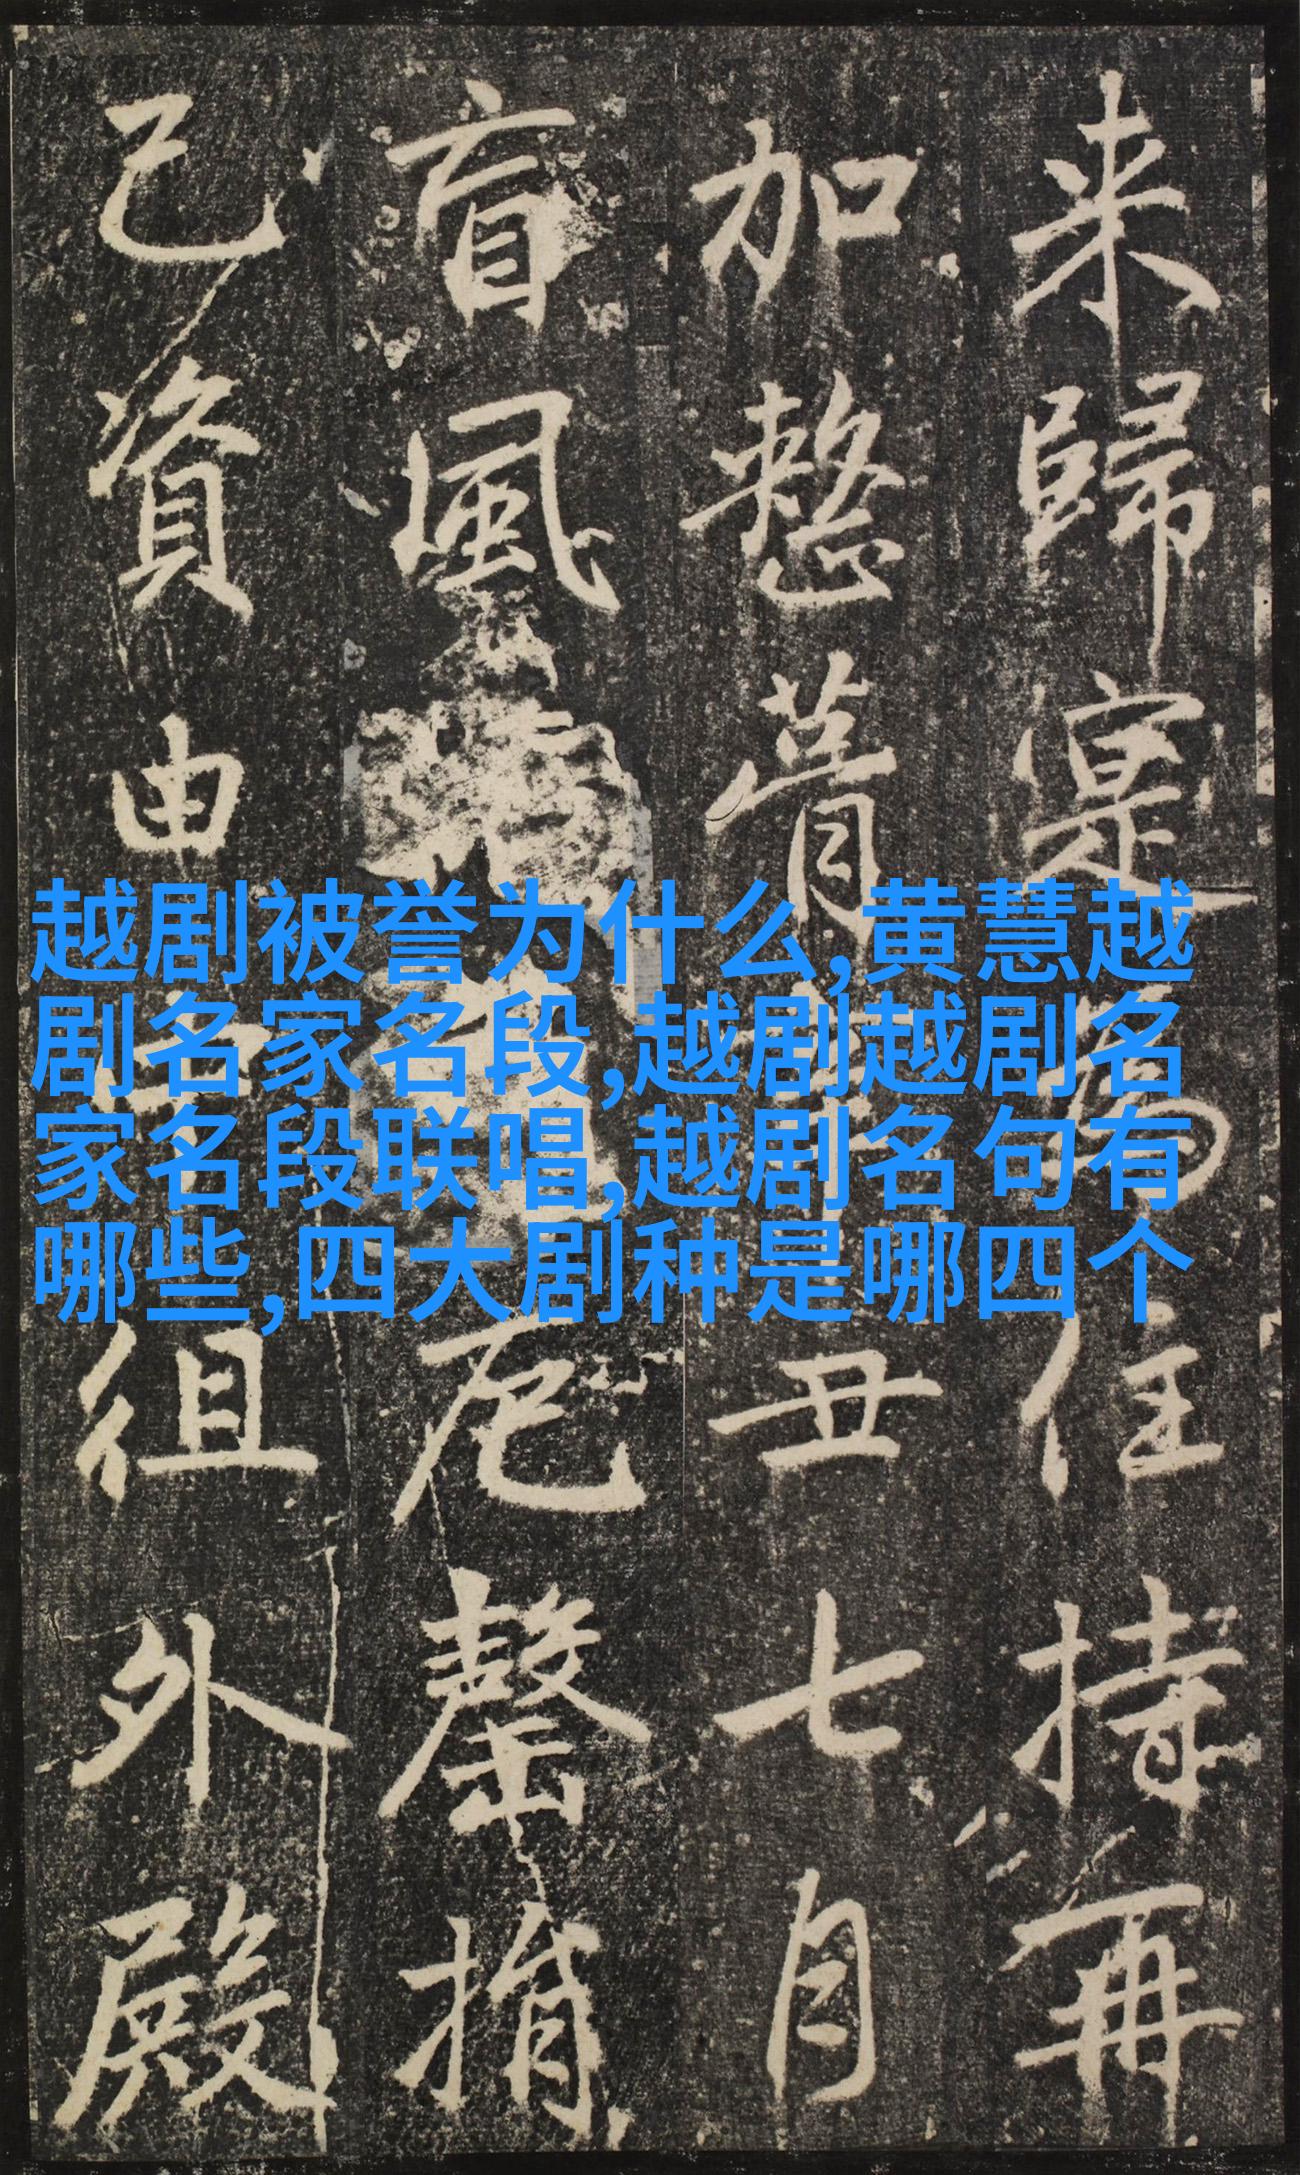 来歸寔為住持再
加整葺丑七月
盲風罄捐
己資由徂外殿
越剧被誉为什么,黄慧越
剧名家名段,越剧越剧名
家名段联唱,越剧名句有
哪些,四大剧种是哪四个